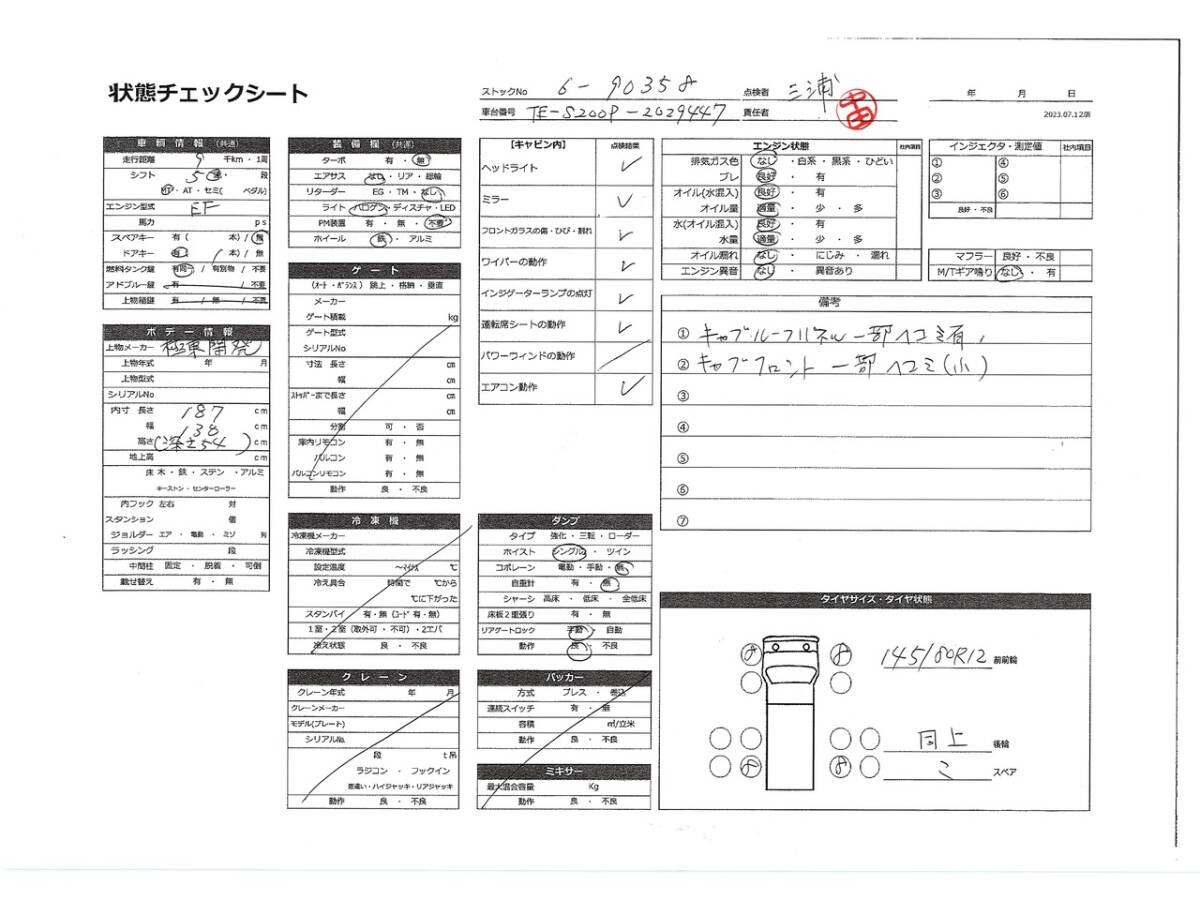 状態チェックシート
ストックNo 6-90358
点検者 三浦
年 月 日
車台番号 TE-S200P-2029447
責任者
2023.07.12版
車輌情報(共通)
走行距離 9 千km・1周
シフト 5 速・ 段
MT・AT・セミ( ペダル)
エンジン型式 EF
馬力 ps
スペアキー 有( 本)/無
ドアキー 有( 1 本)/無
燃料タンク鍵 有同一/有別物/不要
アドブルー鍵 有 / 不要
上物箱鍵 有 / 無 / 不要
ボデー情報
上物メーカー 極東開発
上物年式 年 月
上物型式
シリアルNo
内寸 長さ 187 cm
幅 138 cm
高さ (深さ54) cm
地上高 cm
床 木・鉄・ステン・アルミ
キーストン・センターローラー
内フック 左右 対
スタンション 個
ジョルダー エア・電動・ミゾ 列
ラッシング 段
中間柱 固定・脱着・可倒
載せ替え 有・無
装備欄(共通)
ターボ 有・無
エアサス なし・リア・総輪
リターダー EG・TM・なし
ライト ハロゲン・ディスチャ・LED
PM装置 有・無・不要
ホイール 鉄・アルミ
ゲート
(オート・バランス) 跳上・格納・垂直
メーカー
ゲート積載 kg
ゲート型式
シリアルNo
寸法 長さ cm
幅 cm
ストッパーまで長さ cm
幅 cm
分割 可・否
庫内リモコン 有・無
バルコン 有・無
バルコンリモコン 有・無
動作 良・不良
冷凍機
冷凍機メーカー
冷凍機型式
設定温度 ～マイナス ℃
冷え具合 時間で ℃から
℃に下がった
スタンバイ 有・無(コード有・無)
1室・2室(取外可・不可)・2エバ
冷え状態 良・不良
クレーン
クレーン年式 年 月
クレーンメーカー
モデル(プレート)
シリアルNo.
段 t吊
ラジコン・フックイン
差違い・ハイジャッキ・リアジャッキ
動作 良・不良
【キャビン内】 点検結果
ヘッドライト ✓
ミラー ✓
フロントガラスの傷・ひび・割れ ✓
ワイパーの動作 ✓
インジゲーターランプの点灯 ✓
運転席シートの動作 ✓
パワーウィンドの動作
エアコン動作 ✓
ダンプ
タイプ 強化・三転・ローダー
ホイスト シングル・ツイン
コボレーン 電動・手動・無
自重計 有・無
シャーシ 高床・低床・全低床
床板2重張り 有・無
リアゲートロック 手動・自動
動作 良・不良
パッカー
方式 プレス・巻込
連続スイッチ 有・無
容積 ㎥/立米
動作 良・不良
ミキサー
最大混合容量 Kg
動作 良・不良
エンジン状態 社内項目
排気ガス色 なし・白系・黒系・ひどい
ブレ 良好・有
オイル(水混入) 良好・有
オイル量 適量・少・多
水(オイル混入) 良好・有
水量 適量・少・多
オイル漏れ なし・にじみ・漏れ
エンジン異音 なし・異音あり
インジェクタ・測定値 社内項目
① ④
② ⑤
③ ⑥
良好・不良
マフラー 良好・不良
M/Tギア鳴り なし・有
備考
① キャブルーフパネル一部ヘコミ有
② キャブフロント一部ヘコミ(小)
③
④
⑤
⑥
⑦
タイヤサイズ・タイヤ状態
8 8 145/80R12 前前輪
同上 後輪
8 8 スペア